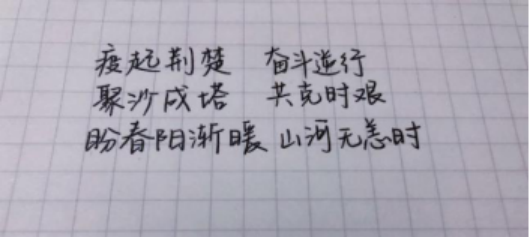 疫起荆楚 奋斗逆行
聚沙成塔 共克时艰
盼春阳渐暖 山河无恙时